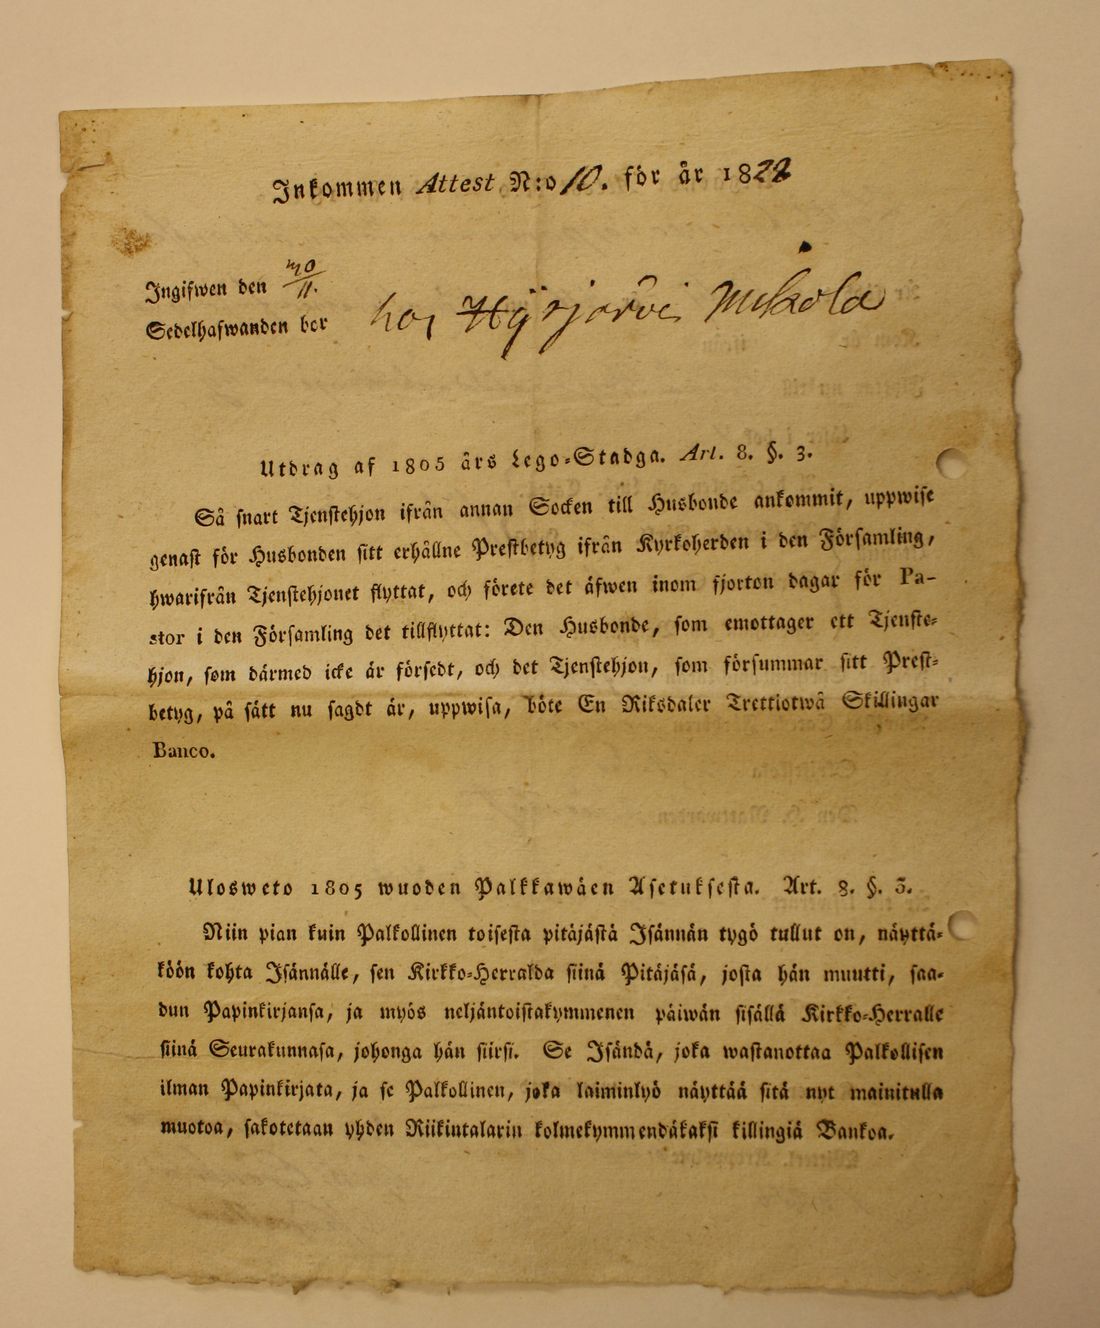 Inkommen Attest N:o 10. för år 1822
Ingifwen den 30/11.
Sedelhafwanden bor hos Hyrjärvi Mikola
Utdrag af 1805 års Lego-Stadga. Art. 8. §. 3.
Så snart Tjenstehjon ifrån annan Socken till Husbonde ankommit, uppwise
genast för Husbonden sitt erhållne Prestbetyg ifrån Kyrkoherden i den Församling,
hwarifrån Tjenstehjonet flyttat, och förete det äfwen inom fjorton dagar för Pa-
stor i den Församling det tillflyttat: Den Husbonde, som emottager ett Tjenste-
hjon, som därmed icke är försedt, och det Tjenstehjon, som försummar sitt Prest-
betyg, på sätt nu sagdt är, uppwisa, böte En Riksdaler Trettiotwå Skillingar
Banco.
Ulosweto 1805 wuoden Palkkawäen Asetuksesta. Art. 8. §. 3.
Niin pian kuin Palkollinen toisesta pitäjästä Isännän tygö tullut on, näyttä-
köön kohta Isännälle, sen Kirkko-Herralda siinä Pitäjäsä, josta hän muutti, saa-
dun Papinkirjansa, ja myös neljäntoistakymmenen päiwän sisällä Kirkko-Herralle
siinä Seurakunnasa, johonga hän siirsi. Se Isändä, joka wastanottaa Palkollisen
ilman Papinkirjata, ja se Palkollinen, joka laiminlyö näyttää sitä nyt mainitulla
muotoa, sakotetaan yhden Riikintalarin kolmekymmendäkaksi killingiä Bankoa.